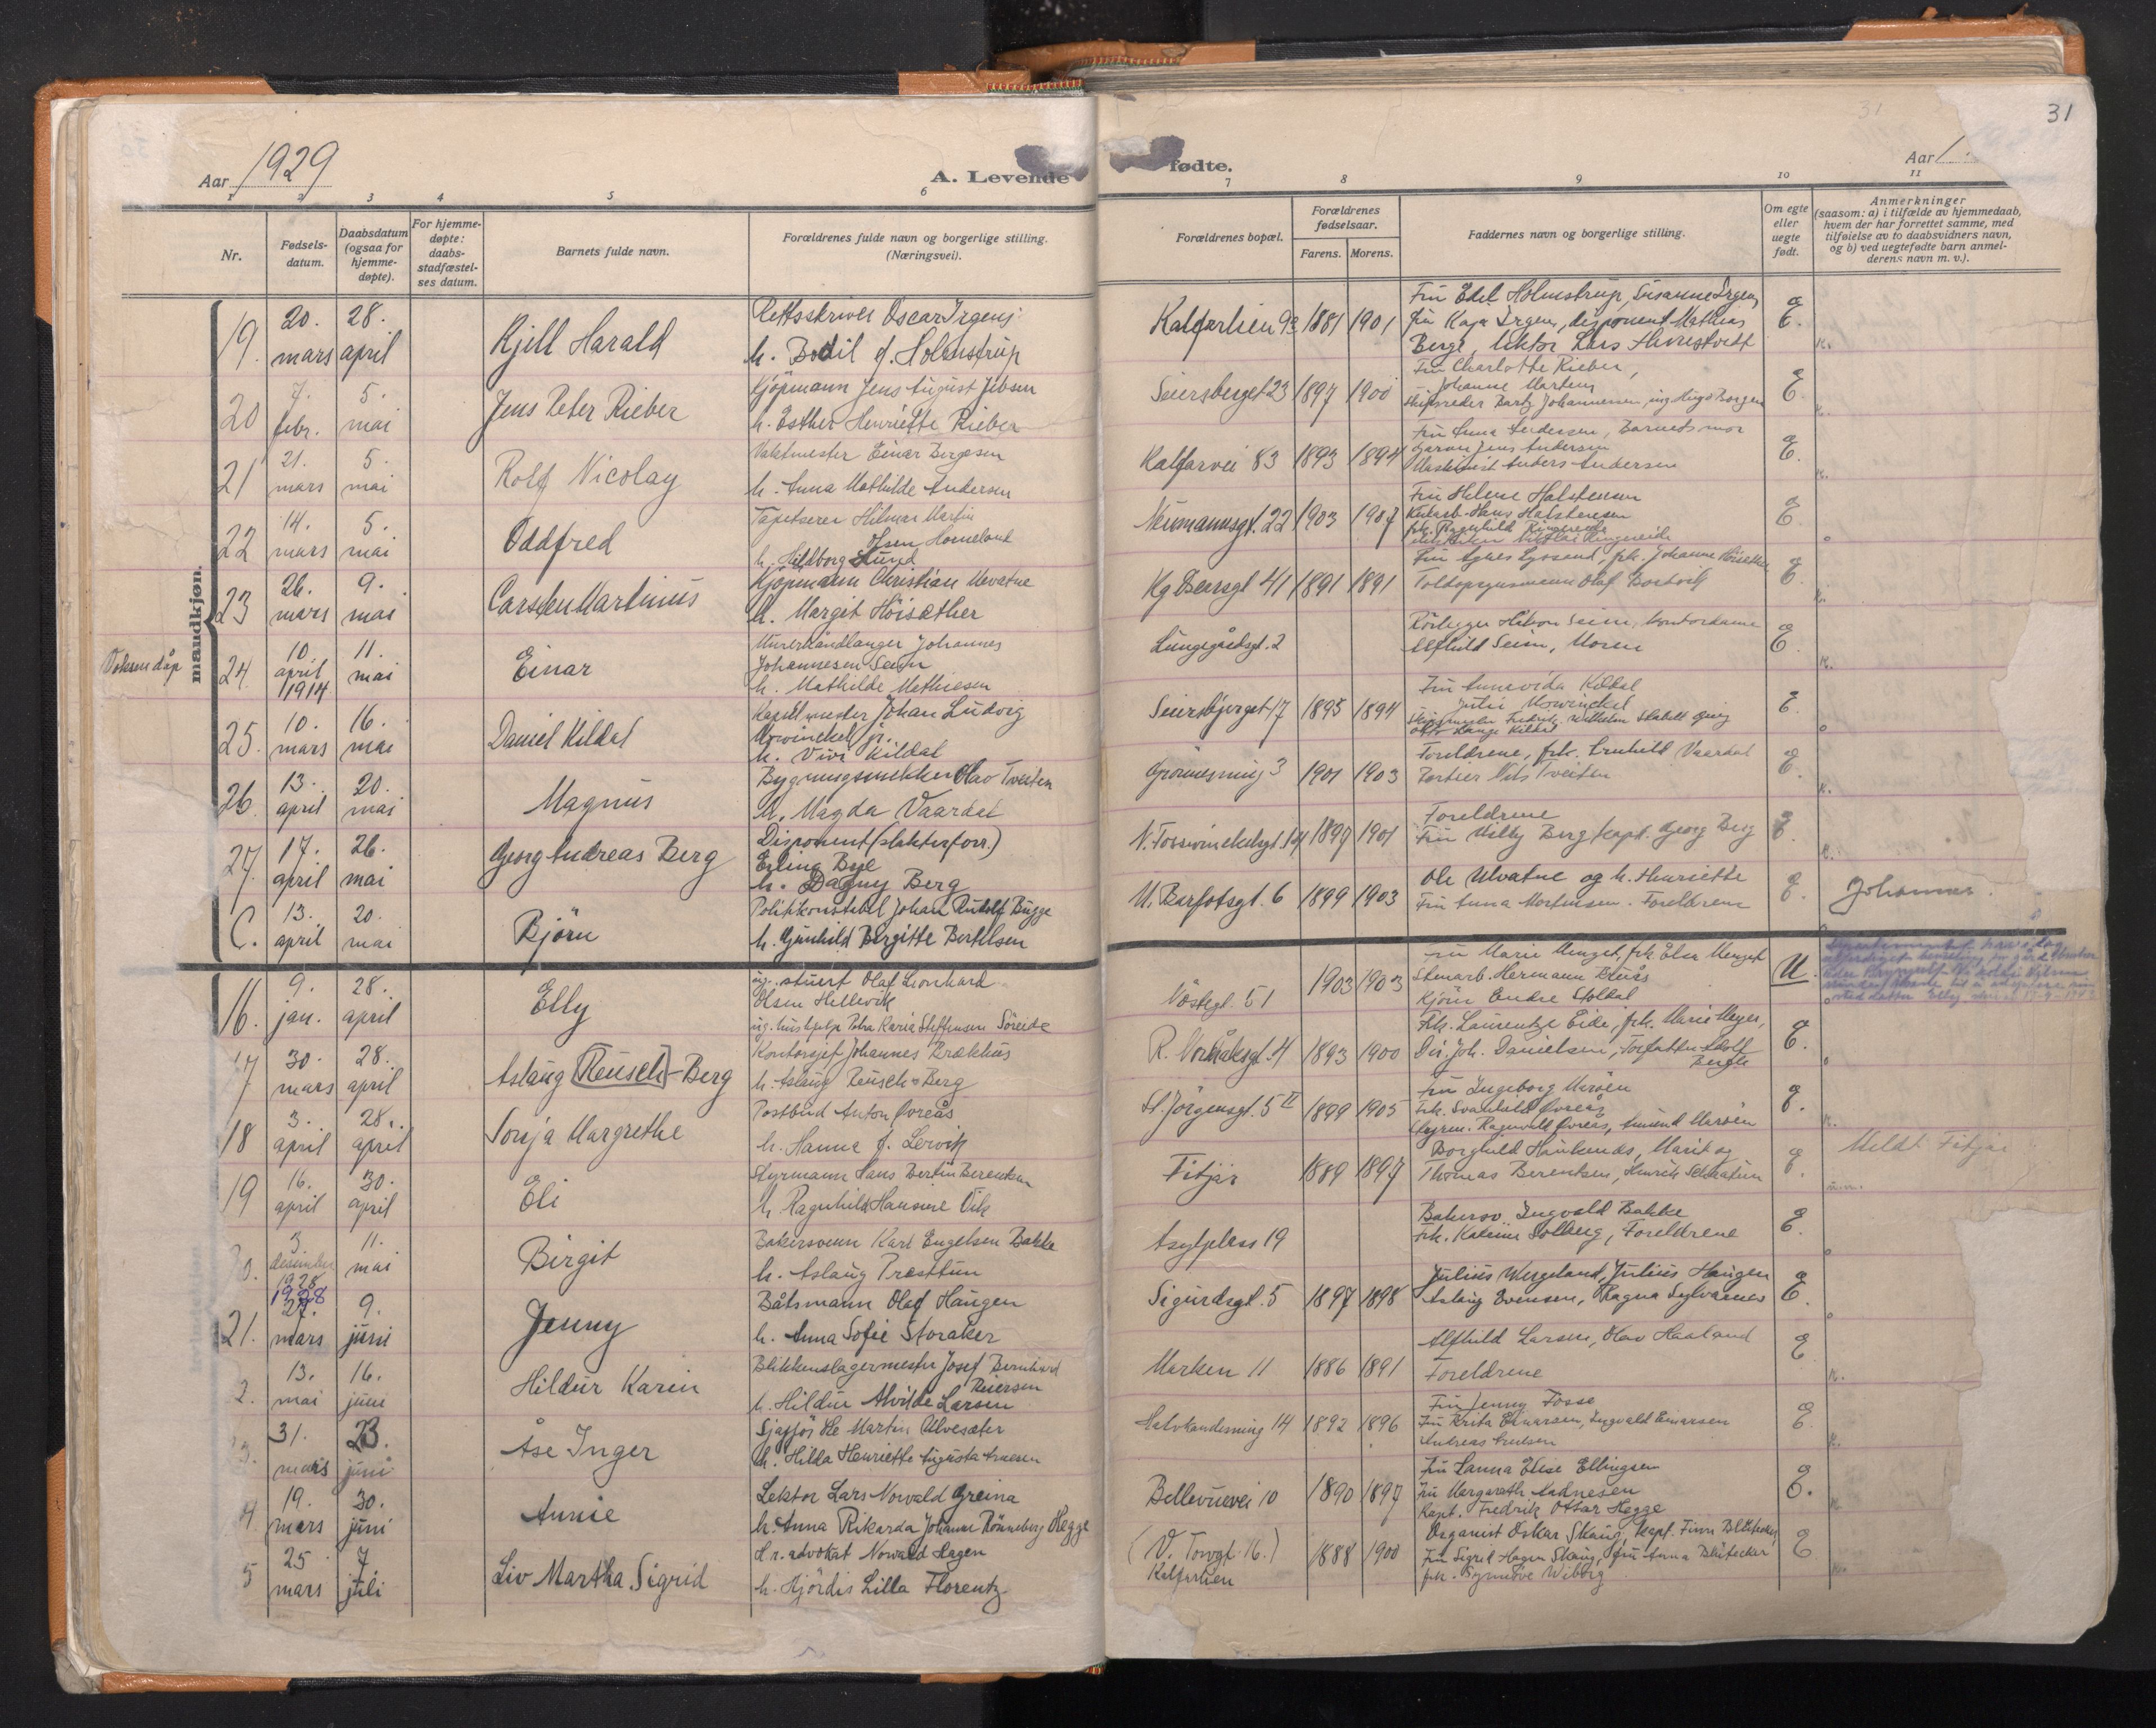 31
Aar 1929
A. Levende
fødte.
Aar 1
1 2 3 4 5 6 7 8 9 10 11
Nr.
Fødsels-
datum.
Daabsdatum
(ogsaa for
hjemme-
døpte).
For hjemme-
døpte:
daabs-
stadfæstel-
ses datum.
Barnets fulde navn.
Forældrenes fulde navn og borgerlige stilling.
(Næringsvei).
Forældrenes bopæl.
Forældrenes
fødselsaar.
Farens. Morens.
Faddernes navn og borgerlige stilling.
Om egte
eller
uegte
født.
Anmerkninger
(saasom: a) i tilfælde av hjemmedaab,
hvem der har forrettet samme, med
tilføielse av to daabsvidners navn,
og b) ved uegtefødte barn anmel-
derens navn m. v.).
mandkjøn.
19. 20. mars 28. april Kjell Harald
Rettsskriver Oscar Irgens
h. Bodil f. Holmstrup
Kalfarlien 93 1881 1901
Fru Edel Holmstrup, Susanne Irgens,
fru Kaja Irgens, disponent Mathias
Berge, lektor Lars
E.
20 7. febr. 5. mai Jens Peter Rieber
Kjöpmann Jens August Jebsen
h. Esther Henriette Rieber
Seiersberget 23 1897 1900
Fru Charlotte Rieber,
Johanne Martens
skipsreder Johannesen, ing. Borgen
E.
21 21. mars 5. mai Rolf Nicolay
Vaktmester Einar Bergesen
h. Anna Mathilde Andersen
Kalfarvei 83 1893 1894
Fru Anna Andersen, Barnets mor
Jens Andersen
Maskinist Anders Andersen
E.
22 14. mars 5. mai Oddfred
Tapetserer Hilmar Martin
Olsen Horneland
h. Hildborg Lund
Neumannsgt. 22 1903 1907
Fru Helene Halstensen
Hans Halstensen
frk. Ragnhild
E.
23 26. mars 9. mai Carsten Martinus
Kjöpmann Christian Ulvatne
h. Margit Höisæther
Kg Oscarsgt 41 1891 1891
Fru Agnes frk. Johanne Höisæther
Olaf
E.
Voksendåp
24. 10. april 1914 11. mai Einar
Murerhåndlanger Johannes
Johannesen Seim
h. Mathilde Mathiesen
Lungegårdsgt. 2
Rörlegger Håkon Seim, kontordame
Alfhild Seim, Moren
E.
25. 10. mars 16. mai Daniel Kildal
Kapellmester Johan Ludvig
Mowinckel jr.
h. Vivi Kildal
Seiersbjerget 17 1895 1894
Fru Annevida Kildal
Julie Mowinckel
E.
26. 13. april 20. mai Magnus
Bygningssnekker Olav Tveiten
h. Magda Vaardal
3 1901 1903
Foreldrene, frk. Vaardal
Portier Nils Tveiten
E.
27. 17. april 26. mai Georg Andreas Berg
Disponent (slakterforr.)
Erling Bye
h. Dagny Berg
N. Fosswinckelsgt. 14 1897 1901
Foreldrene
Fru Willy Berg, kapt. Georg Berg
E.
C. 13. april 20. mai Björn
Politikonstabel Johan Rudolf Bugge
h. Gunhild Birgitte Bertelsen
M. Barfotsgt. 6 1899 1903
Ole Ulvatne og h. Henriette
Fru Anna Mortensen. Foreldrene
E.
Johannes.
16. 9. jan. 28. april Elly
ug. stuert Olaf Leonhard
Olsen Hellevik
ug. hushjelp Petra Karia Steffensen Söreide
51 1903 1903
Fru Marie Menzel, frk Elsa Menzel
Stenarb. Hermann
Kjöm Endre Stoldal
U.
17 30. mars 28. april Aslaug [Reusch]-Berg
Kontorsjef Johannes Brækhus
h. Aslaug Reusch-Berg
4 1893 1900
Frk. Laurentze Eide, frk. Marie Meyer,
Dir. Joh. Danielsen, Forfatter
E.
18 3. april 28. april Sonja Margrethe
Postbud Anton Övreås
h. Hanna f. Lervik
St. Jörgensgt. 5 II 1899 1905
Fru Ingeborg
Frk. Svanhild Övreås
E.
19 16. april 30. april Eli
Styrmann Hans Bertin Berentsen
h. Ragnhild Hansine Vik
Fitjar 1889 1897
Borghild Haukenæs, Marit og
Thomas Berentsen, Henrik
E.
Meldt Fitjar
0. 3. desember 1928 1928 11. mai Birgit
Bakersvenn Karl Engelsen Bakke
h. Aslaug Presttun
Asylplass 19
Bakersv. Ingvald Bakke
Frk. Katrine Solberg, Foreldrene
E.
21. 27. mars 9. juni Jenny
Båtsmann Olaf Haugen
h. Anna Sofie Storaker
Sigurdsgt. 5 1897 1898
Julius Wergeland, Julius Haugen
Aslaug Evensen, Ragna Sylvarnes
E.
2. 13. mai 16. juni Hildur Karin
Blikkenslagermester Josef Bernhard
Reiersen
h. Hildur Alvilde Larsen
Marken 11 1886 1891
Alfhild Larsen, Olav Haaland
Foreldrene
E
3. 31. mars 23. juni Åse Inger
Sjaffør Ole Martin Ulvesæter
h. Hilda Henriette Augusta Arnesen
14 1892 1896
Fru Jenny Fosse
Fru Brita Einarsen, Ingvald Einarsen
Andreas
E.
4 19. mars 30. juni Annie
Lektor Lars Norvald Greina
h. Anna Rikarda Johanne Rönneberg Hegge
Bellevuevei 10 1890 1897
Fru Sanna Elise Ellingsen
Fru Margareth
Kapt. Fredrik Ottar Hegge
E.
5 25 mars 7. juli Liv Martha Sigrid
H.r. advokat Norvald Hagen
h. Hjördis Lilla Florentz
(V. Torvgt. 16.)
Kalfarlien 1888 1900
Organist Oskar Skaug, kapt. Finn
Fru Sigrid Hagen Skaug, fru Anna
frk. Synnöve Wiborg
E